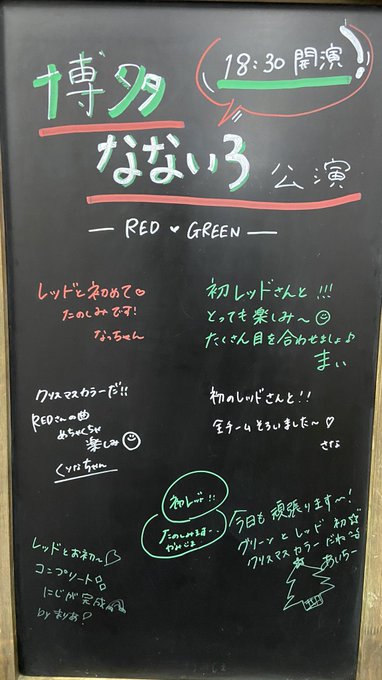 18:30 開演!
博多
なないろ 公演
— RED ♥ GREEN —
レッドと初めて♡
たのしみです!
なっちゃん
初レッドさんと!!!
とっても楽しみ〜☺
たくさん目を合わせましょ♪
まい
クリスマスカラーだ!!
REDさんの曲
めちゃくちゃ
楽しみ☺
くりなちゃん
初のレッドさんと!!
全チームそろいました〜♡
さな
初レッド!!
たのしみます〜
レッドとお初〜♡
コンプリート
にじが完成
by まりあ
今日も頑張ります〜!
グリーンとレッド初☆
クリスマスカラーだね〜
あいちー